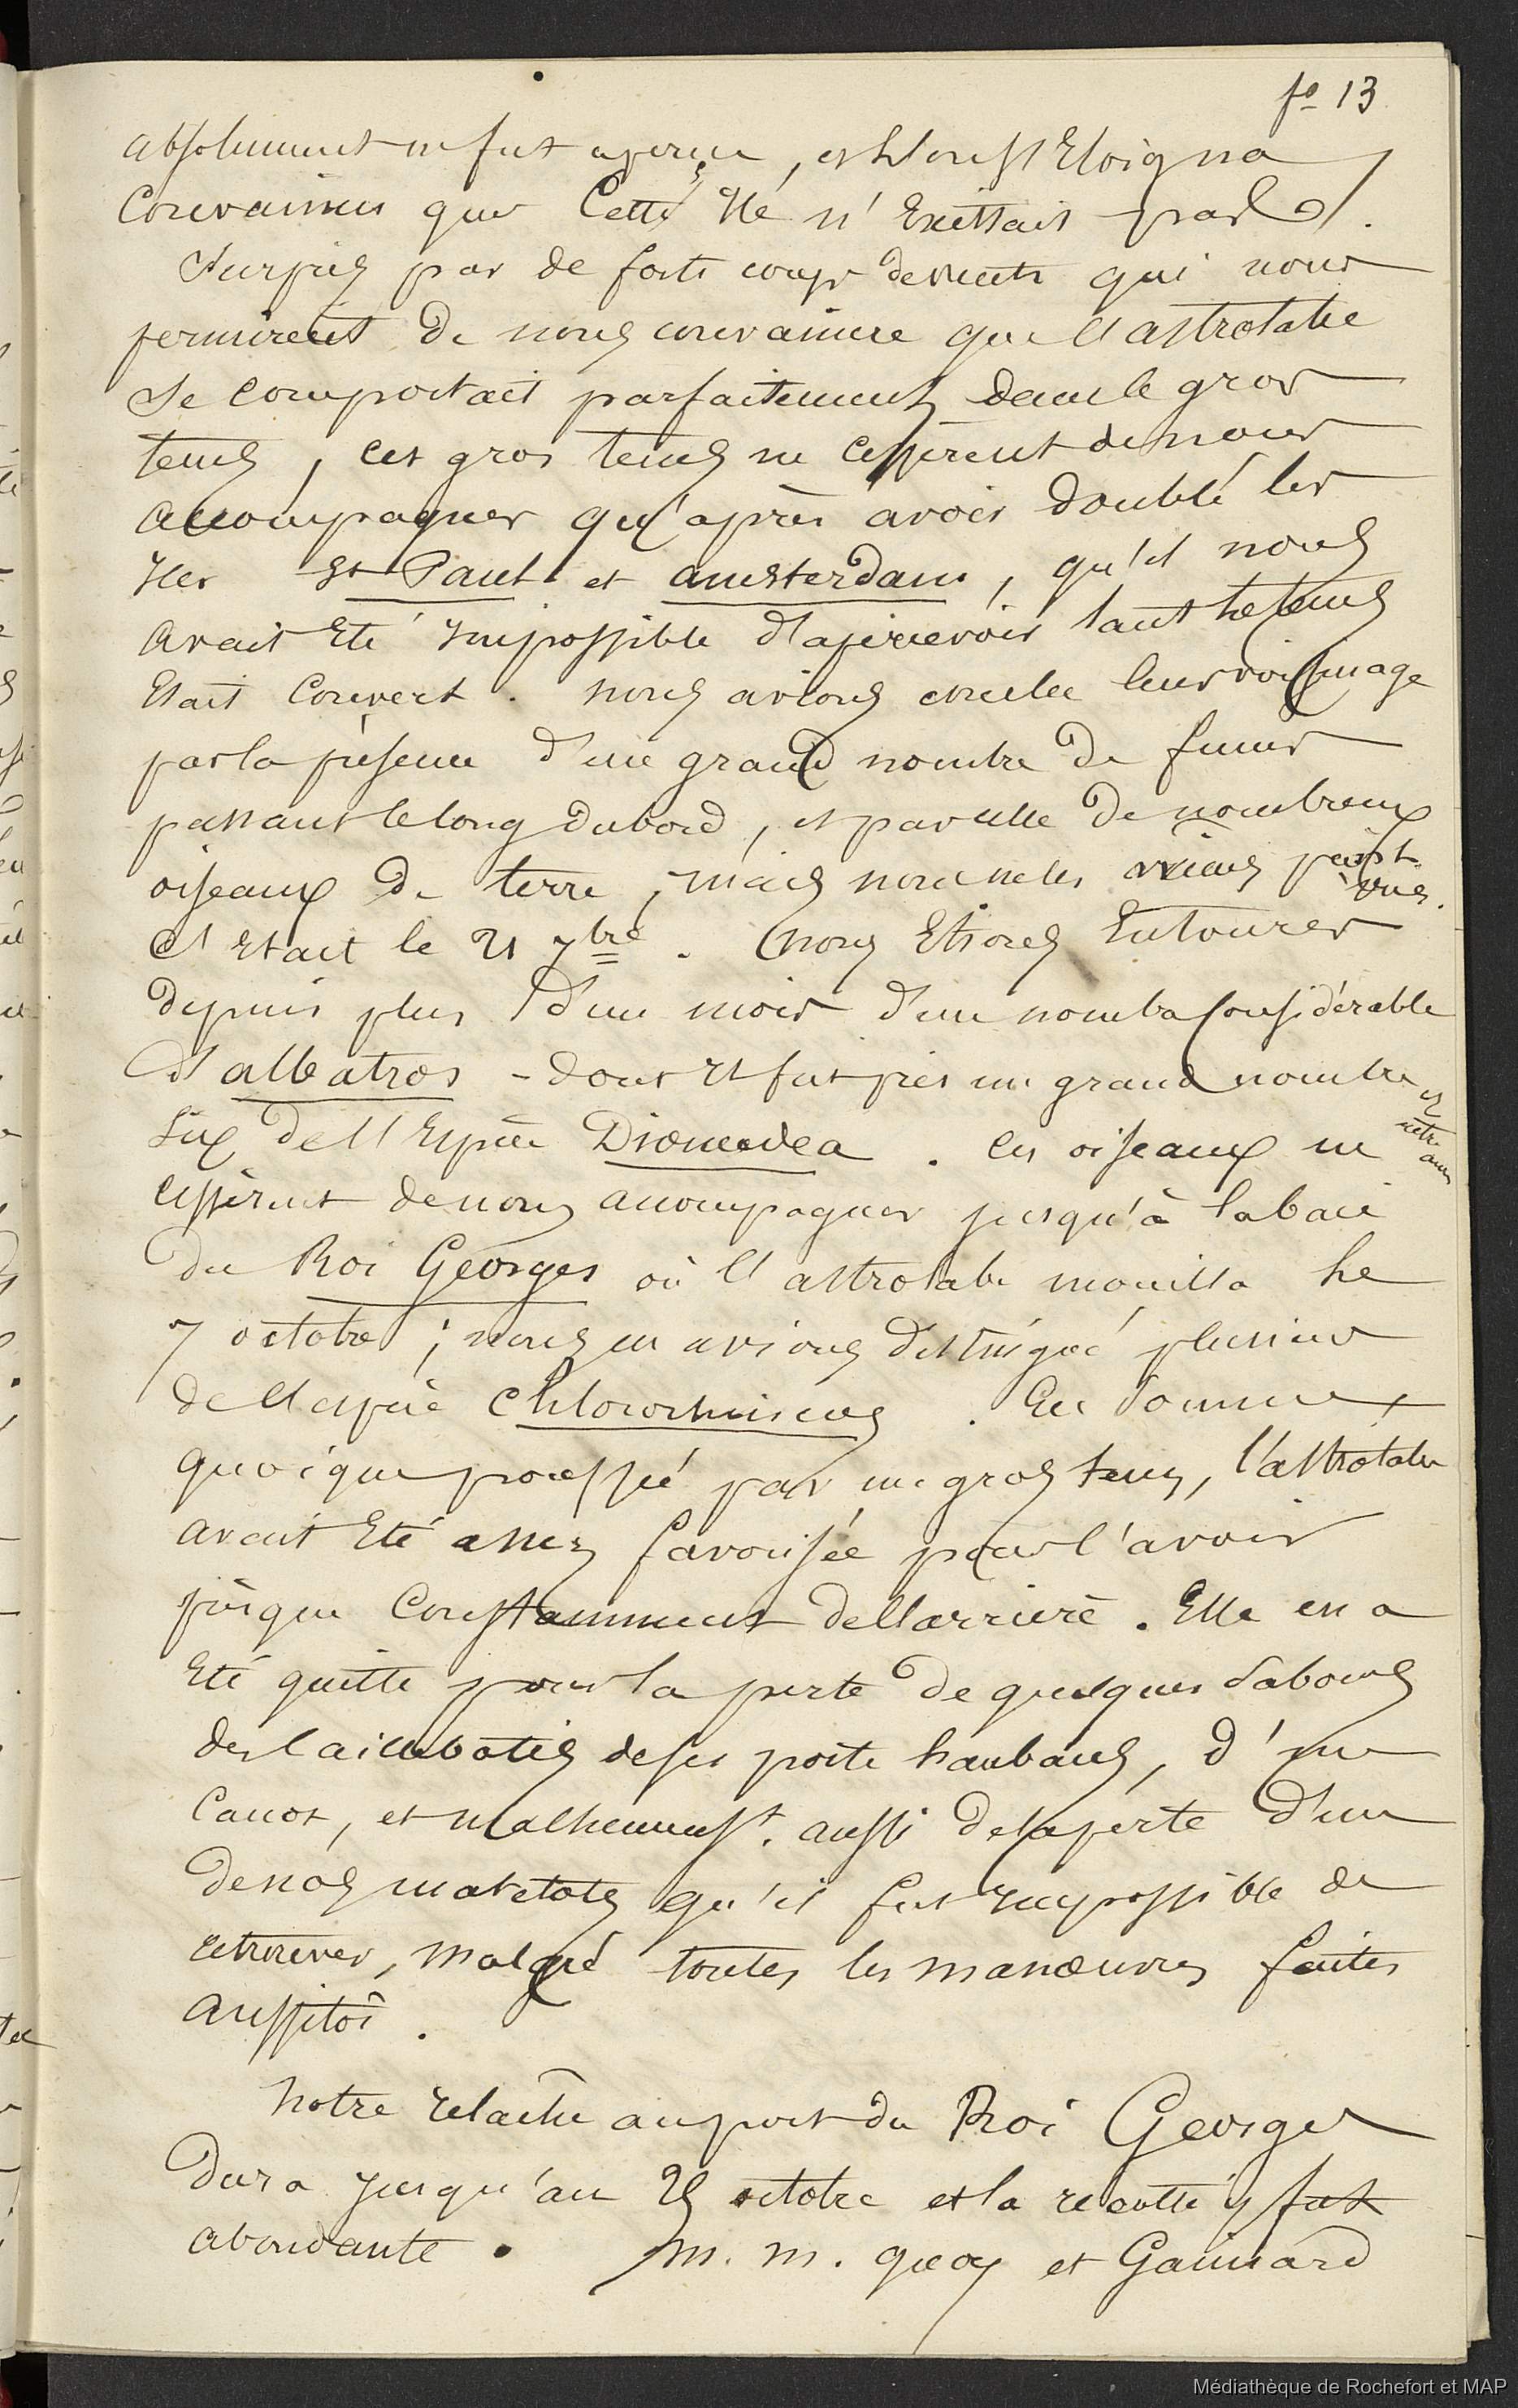 fo 13
absolument ne fut aperçu, et l'on s'Eloigna
Convaincus que Cette Ile n'Existait pas.
Surpris par de forts coups de vents qui nous
permirent De nous convaincre que l'astrolabe
se comportait parfaitement dans le gros
tems, ces gros tems ne cessèrent de nous
accompagner qu'après avoir doublé les
Iles St Paul et amsterdam, qu'il nous
avait Eté Impossible d'apercevoir tant le tems
Etait Couvert. nous avions conclu leur voisinage
par la présence d'un grand nombre De fucus
passant le long du bord, et par celle De nombreux
oiseaux De terre, mais nous ne les vimes point
vus.
C'Etait le 21 7bre. Nous Etions Entourés
depuis plus d'un mois d'un nombre Considérable
d'albatros - dont Il fut pris un grand nombre et
entre
autres
six de l'Espèce Diomedea. Ces oiseaux ne
cessèrent de nous accompagner jusqu'à la baie
du Roi Georges où l'astrolabe mouilla le
7 octobre; nous en avions distingué plusieurs
de l'espèce Chlororhincos. En somme
quoique poussée par un gros tems, l'astrolabe
avait Eté assez favorisée pour l'avoir
presque Constamment de l'arrière. Elle en a
Eté quitte pour la perte de quelques sabords
des caillebotis de ses porte haubans, d'un
Canot, et malheureust. aussi de la perte d'un
de nos matelots qu'il fut Impossible de
retrouver, malgré toutes les manœuvres faites
aussitôt.
Notre relache au port du Roi Georges
Dura jusqu'au 25 octobre et la récolte y fut
abondante. M. M. Quoy et Gaimard
Médiathèque de Rochefort et MAP